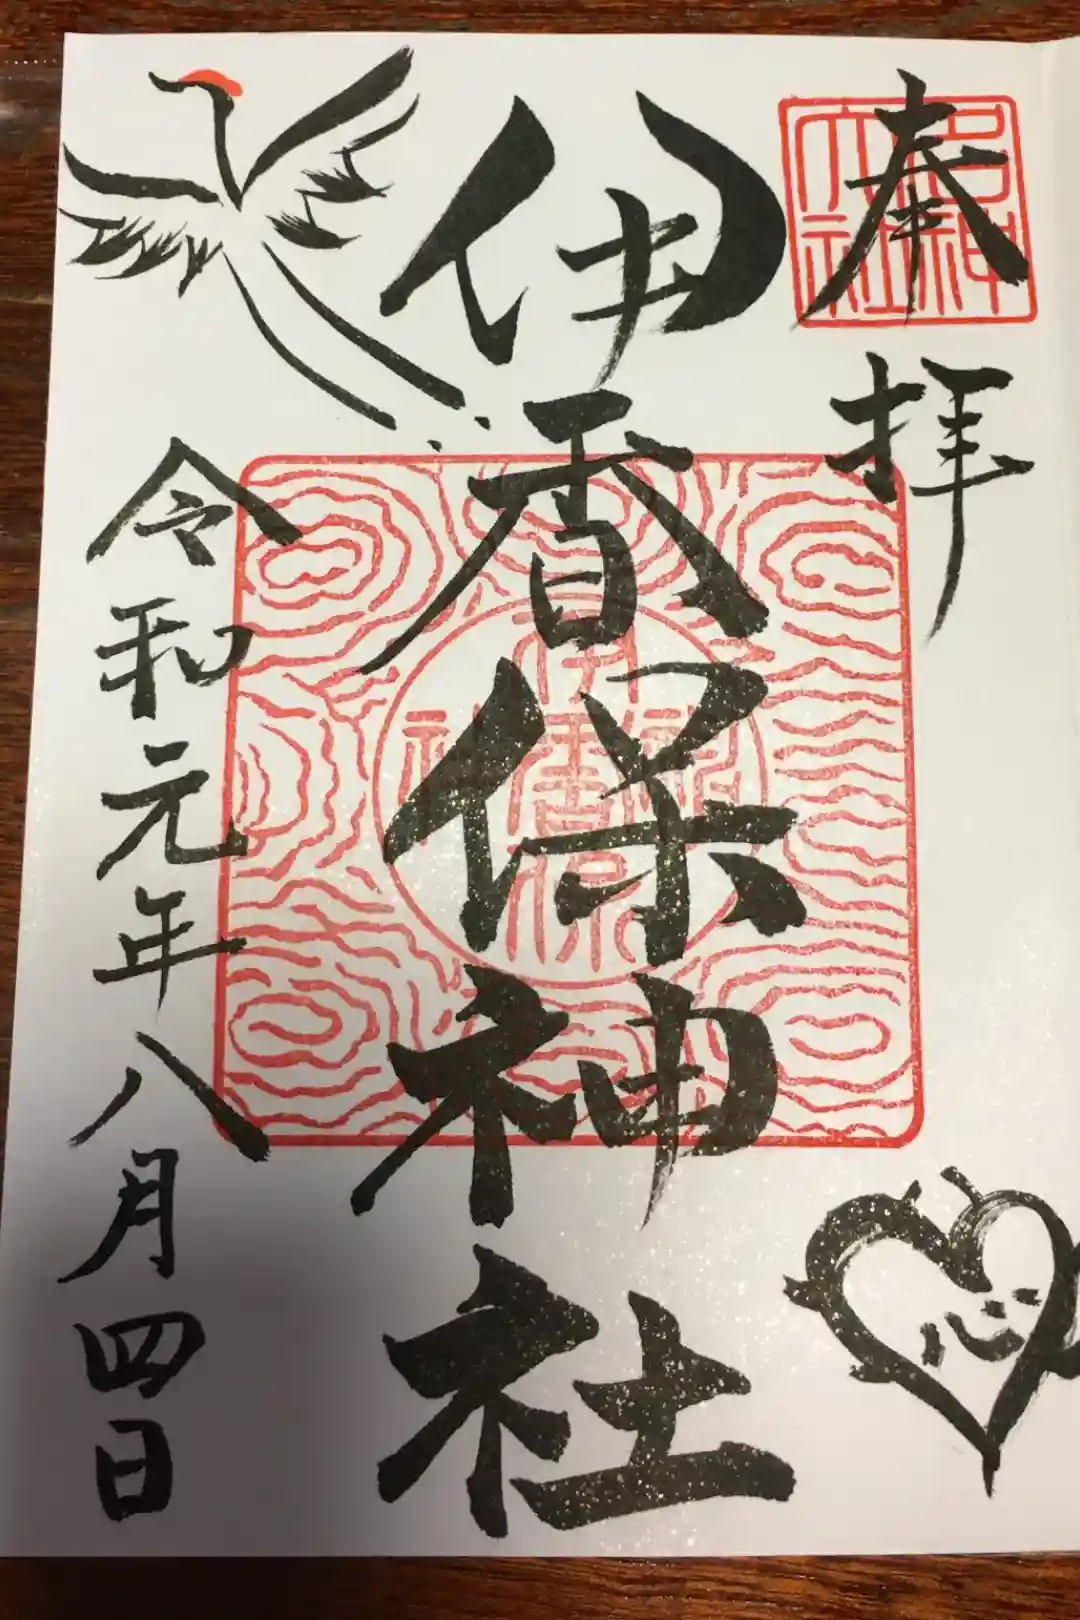 奉拝
名神大社
伊香保神社
令和元年八月四日
心